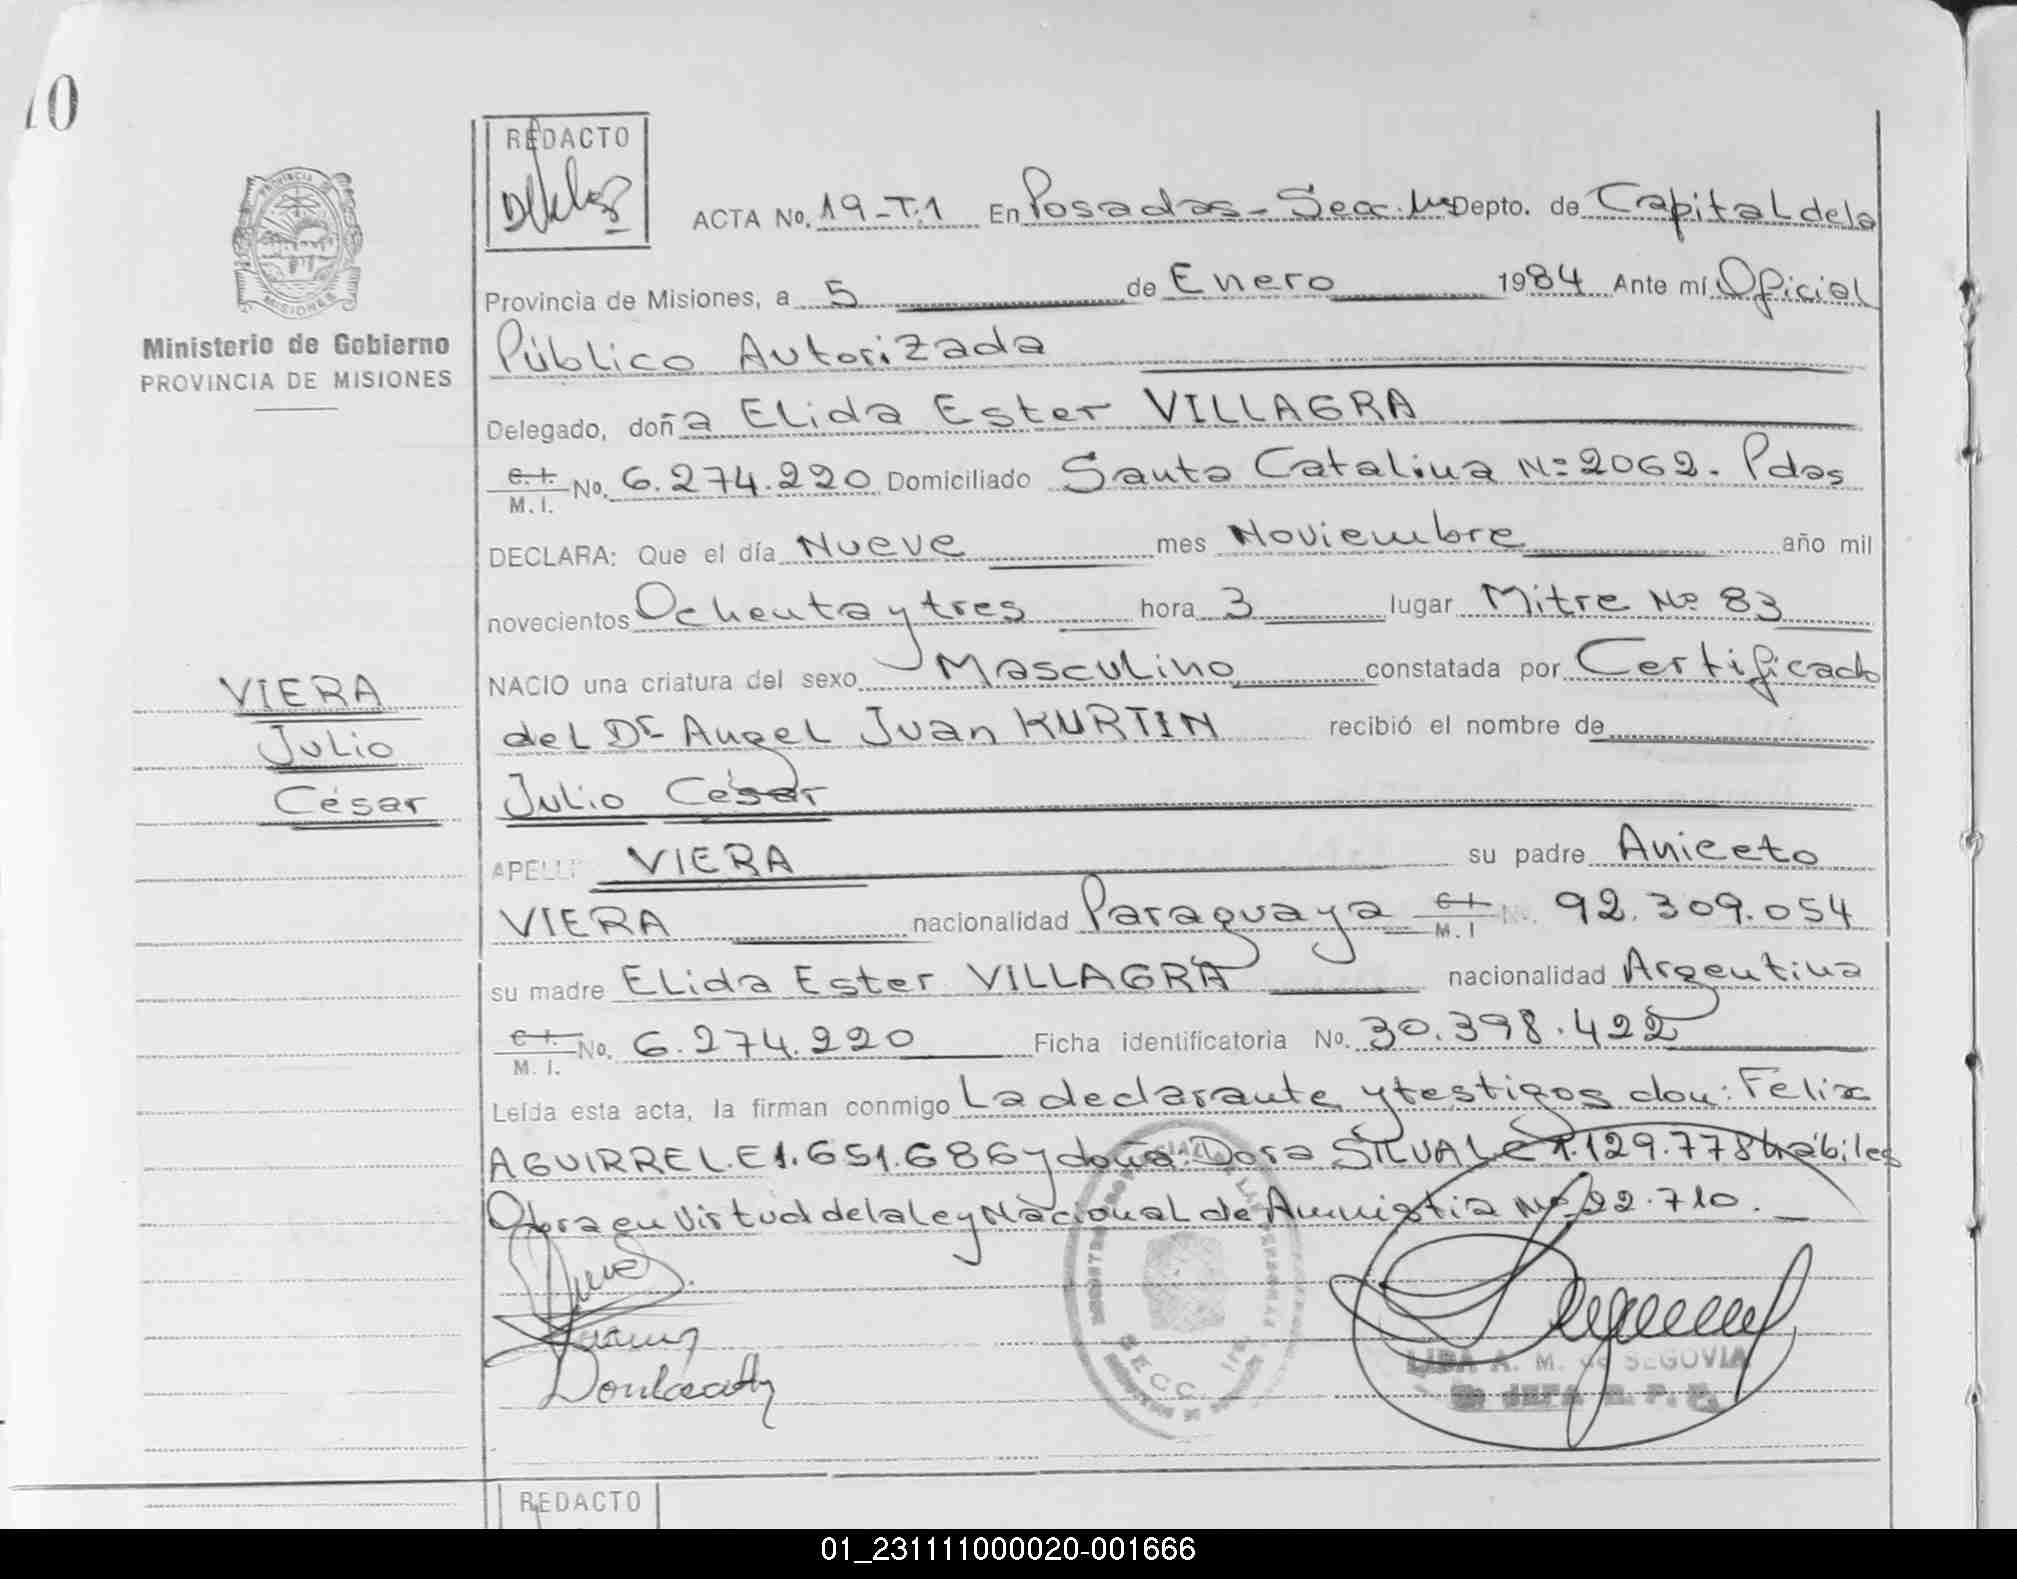 10
REDACTO
ACTA No. 19-T.1 En Posadas - Secc. 1ra Depto. de Capital de la
Provincia de Misiones, a 5 de Enero 1984 Ante mí Oficial
Ministerio de Gobierno
PROVINCIA DE MISIONES
Público Autorizada
Delegado, doña Elida Ester VILLAGRA
C. I. M. I. No. 6.274.220 Domiciliado Santa Catalina Nº 2062. Pdas
DECLARA: Que el día Nueve mes Noviembre año mil
novecientos Ochenta y tres hora 3 lugar Mitre Nº 83
NACIO una criatura del sexo Masculino constatada por Certificado
VIERA
del Dr Angel Juan KURTIN recibió el nombre de
Julio
César
Julio César
APELLI VIERA su padre Aniceto
VIERA nacionalidad Paraguaya C I M. I No. 92.309.054
su madre Elida Ester VILLAGRA nacionalidad Argentina
C I. M. I. No. 6.274.220 Ficha identificatoria No. 30.398.422
Leída esta acta, la firman conmigo La declarante y testigos don: Félix
AGUIRRE L.E 1.651.686 y doña: Dora SILVA L e 1.129.778 hábiles
Obra en virtud de la ley Nacional de Amnistia Nº 22.710.
SECC. 1ra
LIDA A. M. de SEGOVIA
JEFA R. P.
REDACTO
01_231111000020-001666